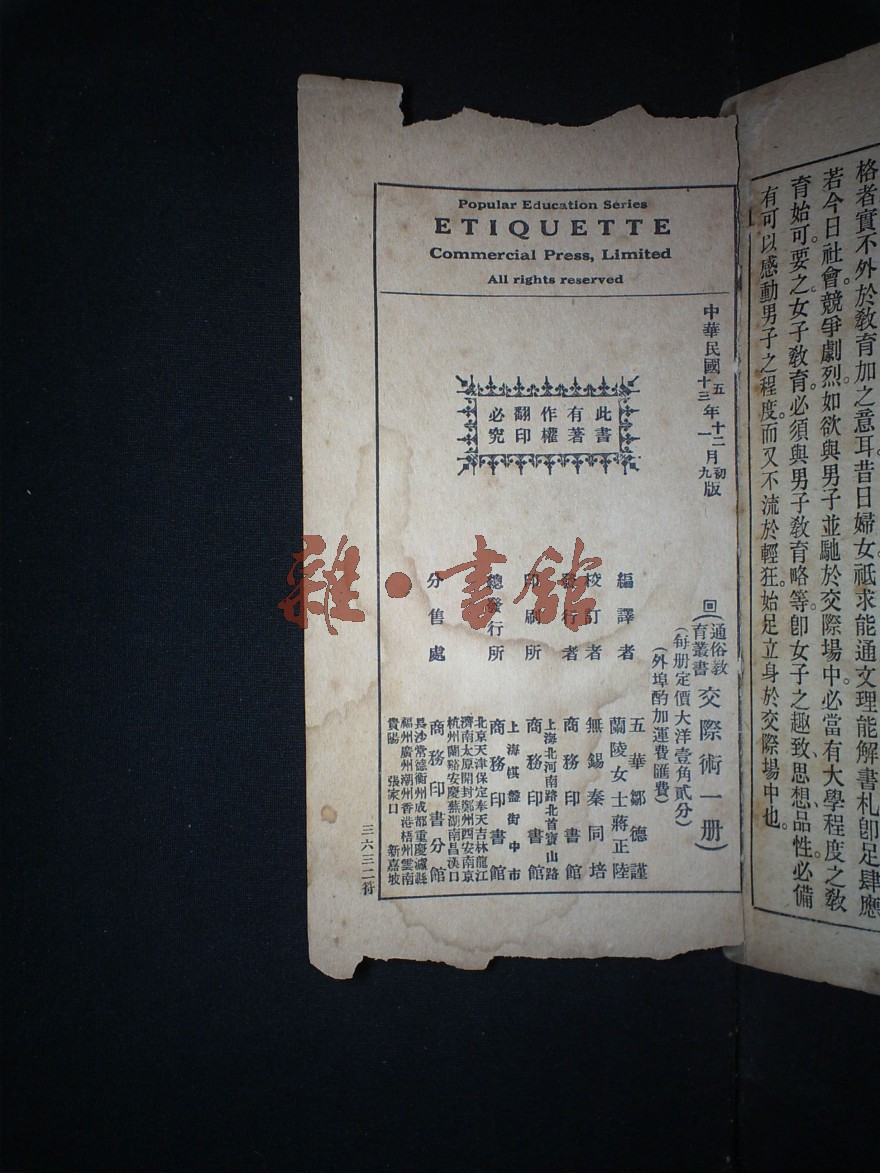 格者實不外於敎育加之意耳昔日婦女祗求能通文理能解書札卽足肆應
若今日社會競爭劇烈。如欲與男子並馳於交際場中。必當有大學程度之敎
育始可。要之女子敎育。必須與男子敎育略等。卽女子之趣致、思想、品性。必備
有可以感動男子之程度。而又不流於輕狂。始足立身於交際場中也。
Popular Education Series
ETIQUETTE
Commercial Press, Limited
All rights reserved
中華民國五年十二月初版
十三年一九版
此書
有著
作權
翻印
必究
回(通俗敎育叢書 交際術一册)
(每册定價大洋壹角貳分)
(外埠酌加運費匯費)
編譯者 五華鄒德謹
蘭陵女士蔣正陸
校訂者 無錫秦同培
發行者 商務印書館
印刷所 上海北河南路北首寶山路
商務印書館
總發行所 上海棋盤街中市
商務印書館
分售處 北京天津保定奉天吉林龍江
濟南太原開封鄭州西安南京
杭州蘭谿安慶蕪湖南昌漢口
商務印書分館
長沙常德衡州成都重慶瀘縣
福州廣州潮州香港梧州雲南
貴陽 張家口 新嘉坡
三六三二符
雜·書館